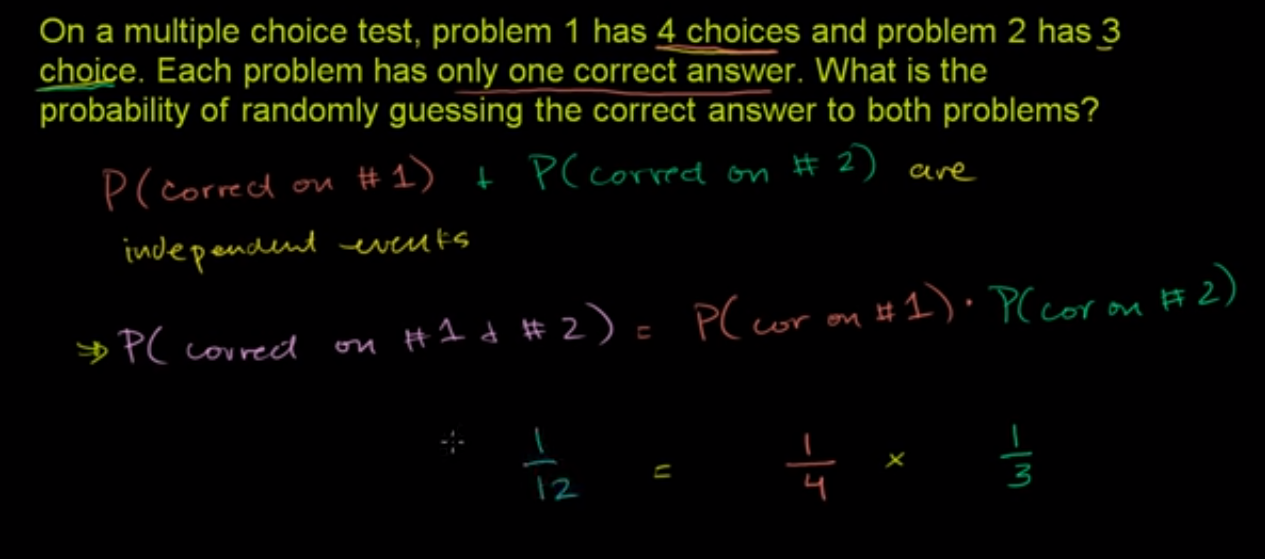 On a multiple choice test, problem 1 has 4 choices and problem 2 has 3
choice. Each problem has only one correct answer. What is the
probability of randomly guessing the correct answer to both problems?
P(correct on #1) & P(correct on #2) are
independent events
⇒ P(correct on #1 & #2) = P(cor on #1) · P(cor on #2)
1/12 = 1/4 × 1/3